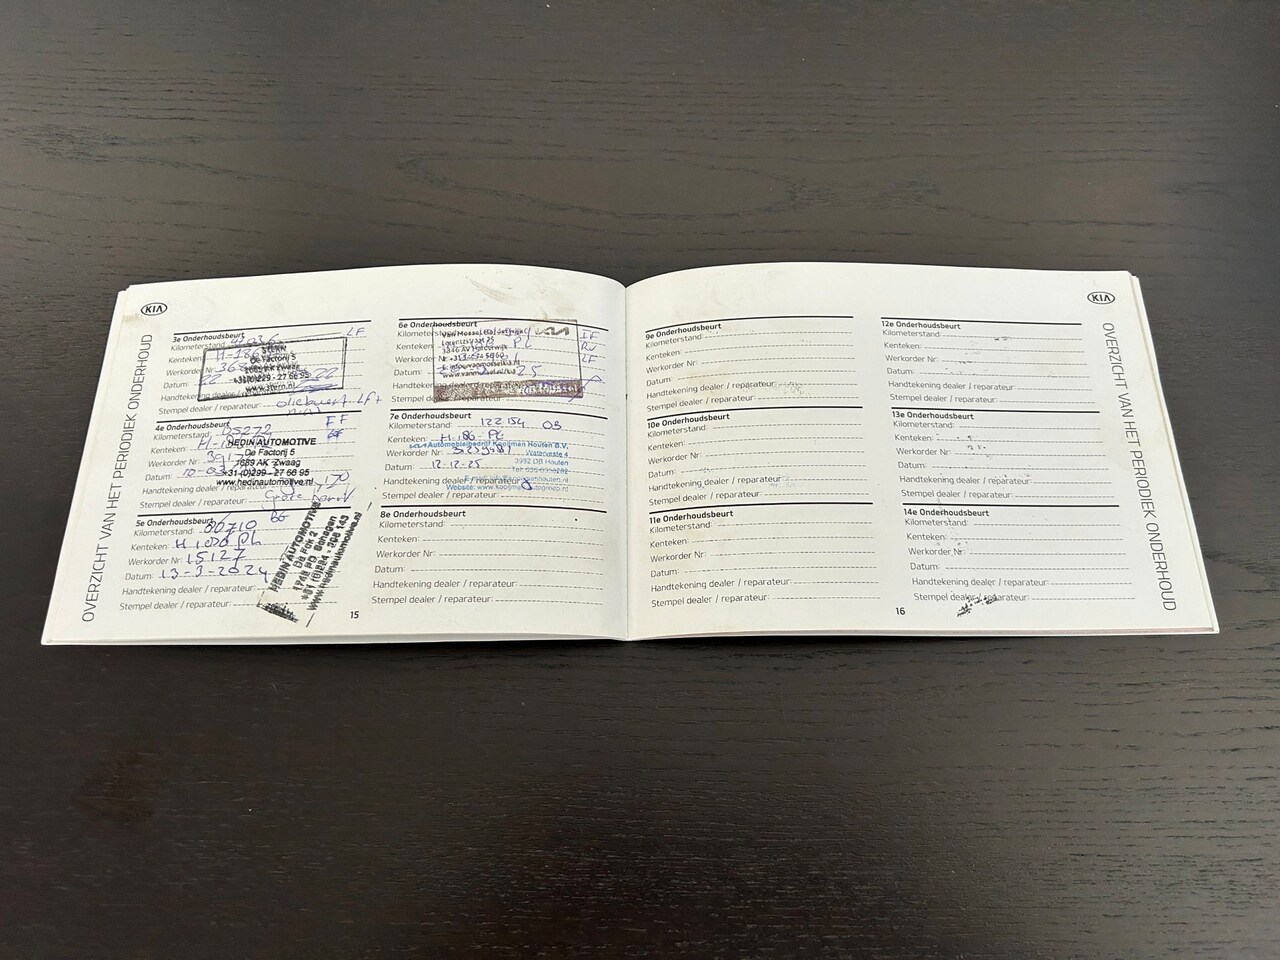 KIA
OVERZICHT VAN HET PERIODIEK ONDERHOUD
3e Onderhoudsbeurt LF
Kilometerstand:
Kenteken:
Werkorder Nr:
Datum: 22
Handtekening dealer / reparateur:
Stempel dealer / reparateur:
STERN
De Factorij 5
1689 AK Zwaag
+31(0)229 - 27 66 95
www.stern.nl
4e Onderhoudsbeurt FF
Kilometerstand:
Kenteken:
Werkorder Nr:
Datum:
Handtekening dealer / reparateur:
Stempel dealer / reparateur:
HEDIN AUTOMOTIVE
De Factorij 5
1689 AK Zwaag
+31(0)299 - 27 66 95
www.hedinautomotive.nl
5e Onderhoudsbeurt
Kilometerstand: 86710
Kenteken:
Werkorder Nr: 15127
Datum: 13-3-2024
Handtekening dealer / reparateur:
Stempel dealer / reparateur:
HEDIN AUTOMOTIVE
www.hedinautomotive.nl
15
6e Onderhoudsbeurt
Kilometerstand:
Kenteken: PL
Werkorder Nr:
Datum: 25
Handtekening dealer / reparateur:
Stempel dealer / reparateur:
3846 AV Harderwijk
7e Onderhoudsbeurt
Kilometerstand: 122154
Kenteken: H-186-PL
Werkorder Nr:
Datum: 12-12-25
Handtekening dealer / reparateur:
Stempel dealer / reparateur:
Automobielbedrijf Kooijman Houten B.V.
Waterveste 4
3992 DB Houten
8e Onderhoudsbeurt
Kilometerstand:
Kenteken:
Werkorder Nr:
Datum:
Handtekening dealer / reparateur:
Stempel dealer / reparateur:
9e Onderhoudsbeurt
Kilometerstand:
Kenteken:
Werkorder Nr:
Datum:
Handtekening dealer / reparateur:
Stempel dealer / reparateur:
10e Onderhoudsbeurt
Kilometerstand:
Kenteken:
Werkorder Nr:
Datum:
Handtekening dealer / reparateur:
Stempel dealer / reparateur:
11e Onderhoudsbeurt
Kilometerstand:
Kenteken:
Werkorder Nr:
Datum:
Handtekening dealer / reparateur:
Stempel dealer / reparateur:
16
12e Onderhoudsbeurt
Kilometerstand:
Kenteken:
Werkorder Nr:
Datum:
Handtekening dealer / reparateur:
Stempel dealer / reparateur:
13e Onderhoudsbeurt
Kilometerstand:
Kenteken:
Werkorder Nr:
Datum:
Handtekening dealer / reparateur:
Stempel dealer / reparateur:
14e Onderhoudsbeurt
Kilometerstand:
Kenteken:
Werkorder Nr:
Datum:
Handtekening dealer / reparateur:
Stempel dealer / reparateur:
KIA
OVERZICHT VAN HET PERIODIEK ONDERHOUD